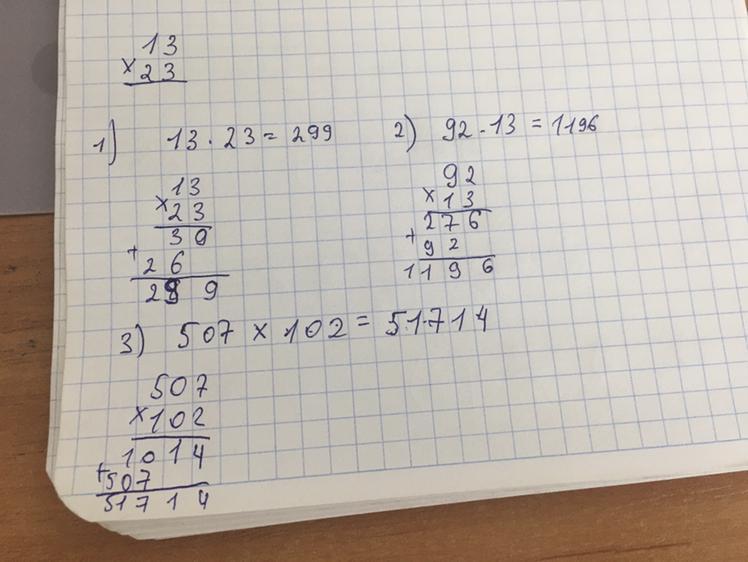 13
× 23
1) 13 · 23 = 299
13
× 23
39
+ 26
299
2) 92 · 13 = 1196
92
× 13
276
+ 92
1196
3) 507 × 102 = 51714
507
× 102
1014
+ 507
51714